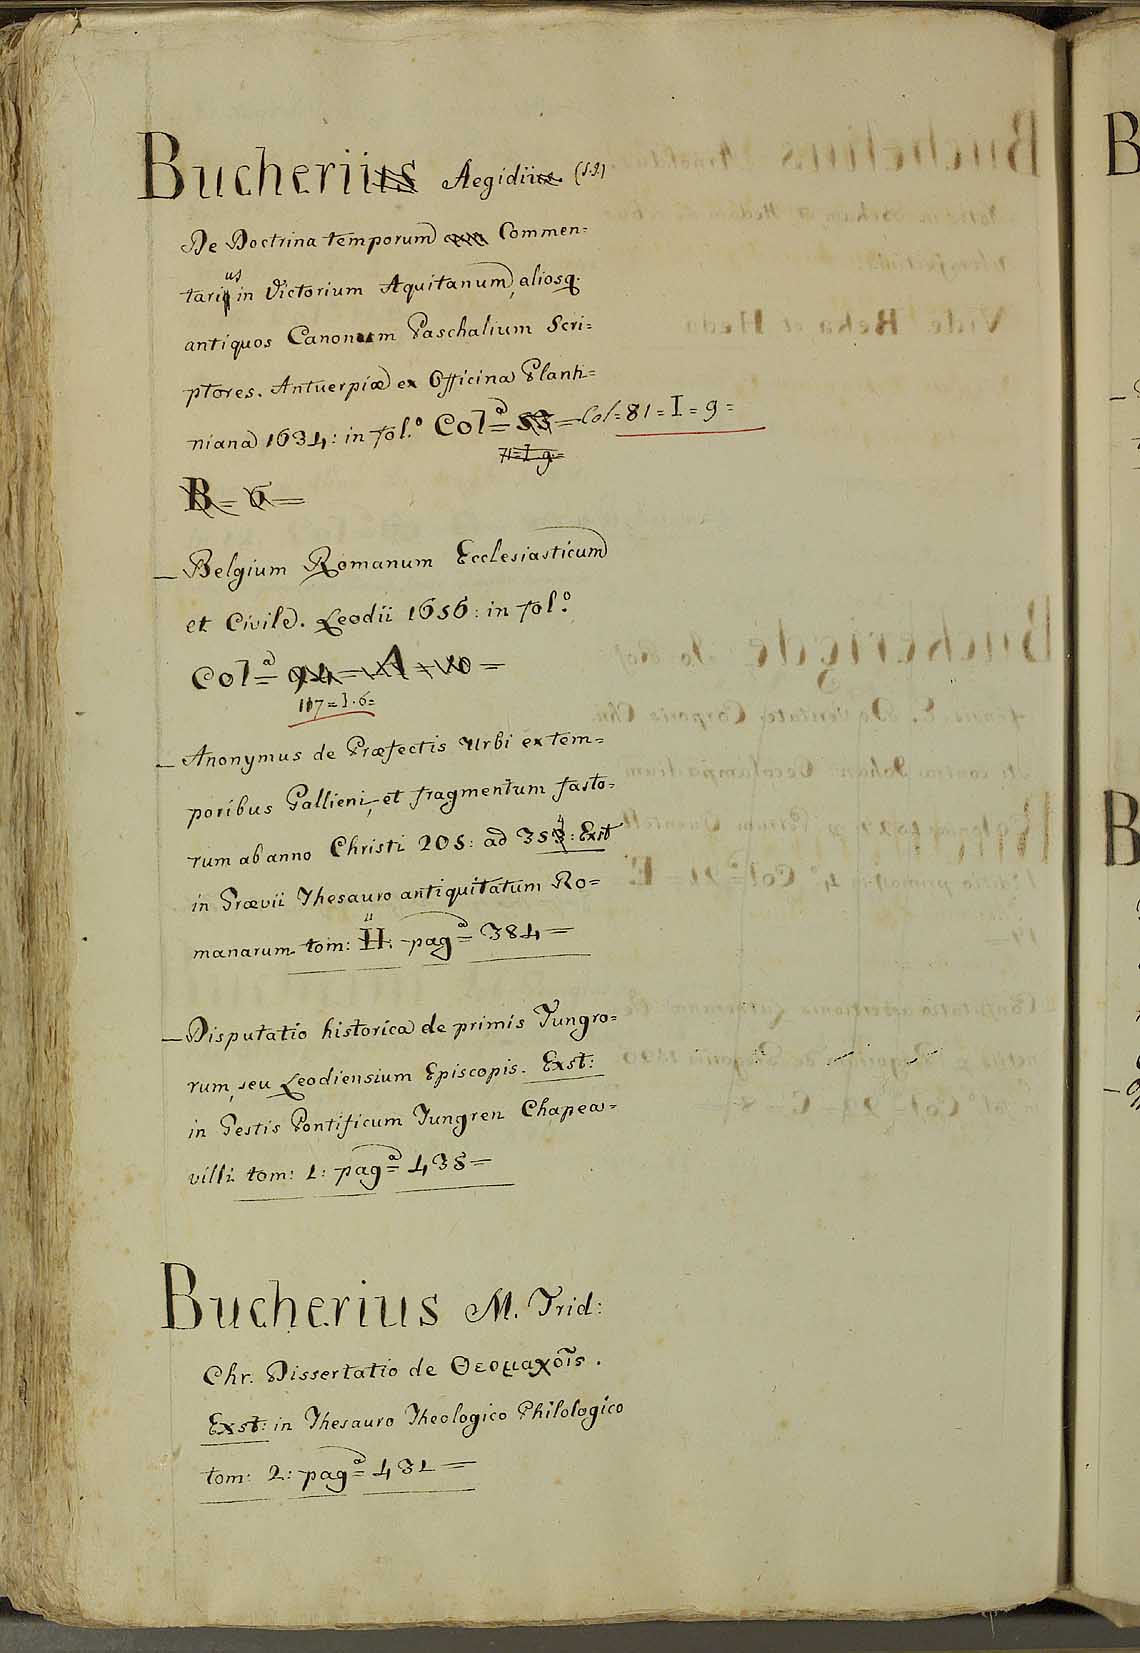 Bucherii Aegidii (S.J.)
De Doctrina temporum Commen=
tarius in Victorium Aquitanum, aliosq.
antiquos Canonum Paschalium Scri=
ptores. Antuerpiæ ex Officina Planti=
niana 1634: in fol.º Colª= 53 = Col=81=I=9=
71=I.9.=
B=6=
_Belgium Romanum Ecclesiasticum
et Civile. Leodii 1656: in fol.º
Colª= 94=A=10=
117=I.6=
_Anonymus de Præfectis Urbi ex tem=
poribus Gallieni, et fragmentum fasto=
rum ab anno Christi 205: ad 354: Exst
in Grævii Thesauro antiquitatum Ro=
manarum tom: II. pagª= 384=
_Disputatio historica de primis Tungro=
rum, seu Leodiensium Episcopis. Exst:
in Gestis Pontificum Tungren Chapea=
villi tom: 1: pagª= 435=
Bucherius M. Frid:
Chr. Dissertatio de Θεομαχοῖς.
Exst: in Thesauro Theologico Philologico
tom: 2: pagª= 431=